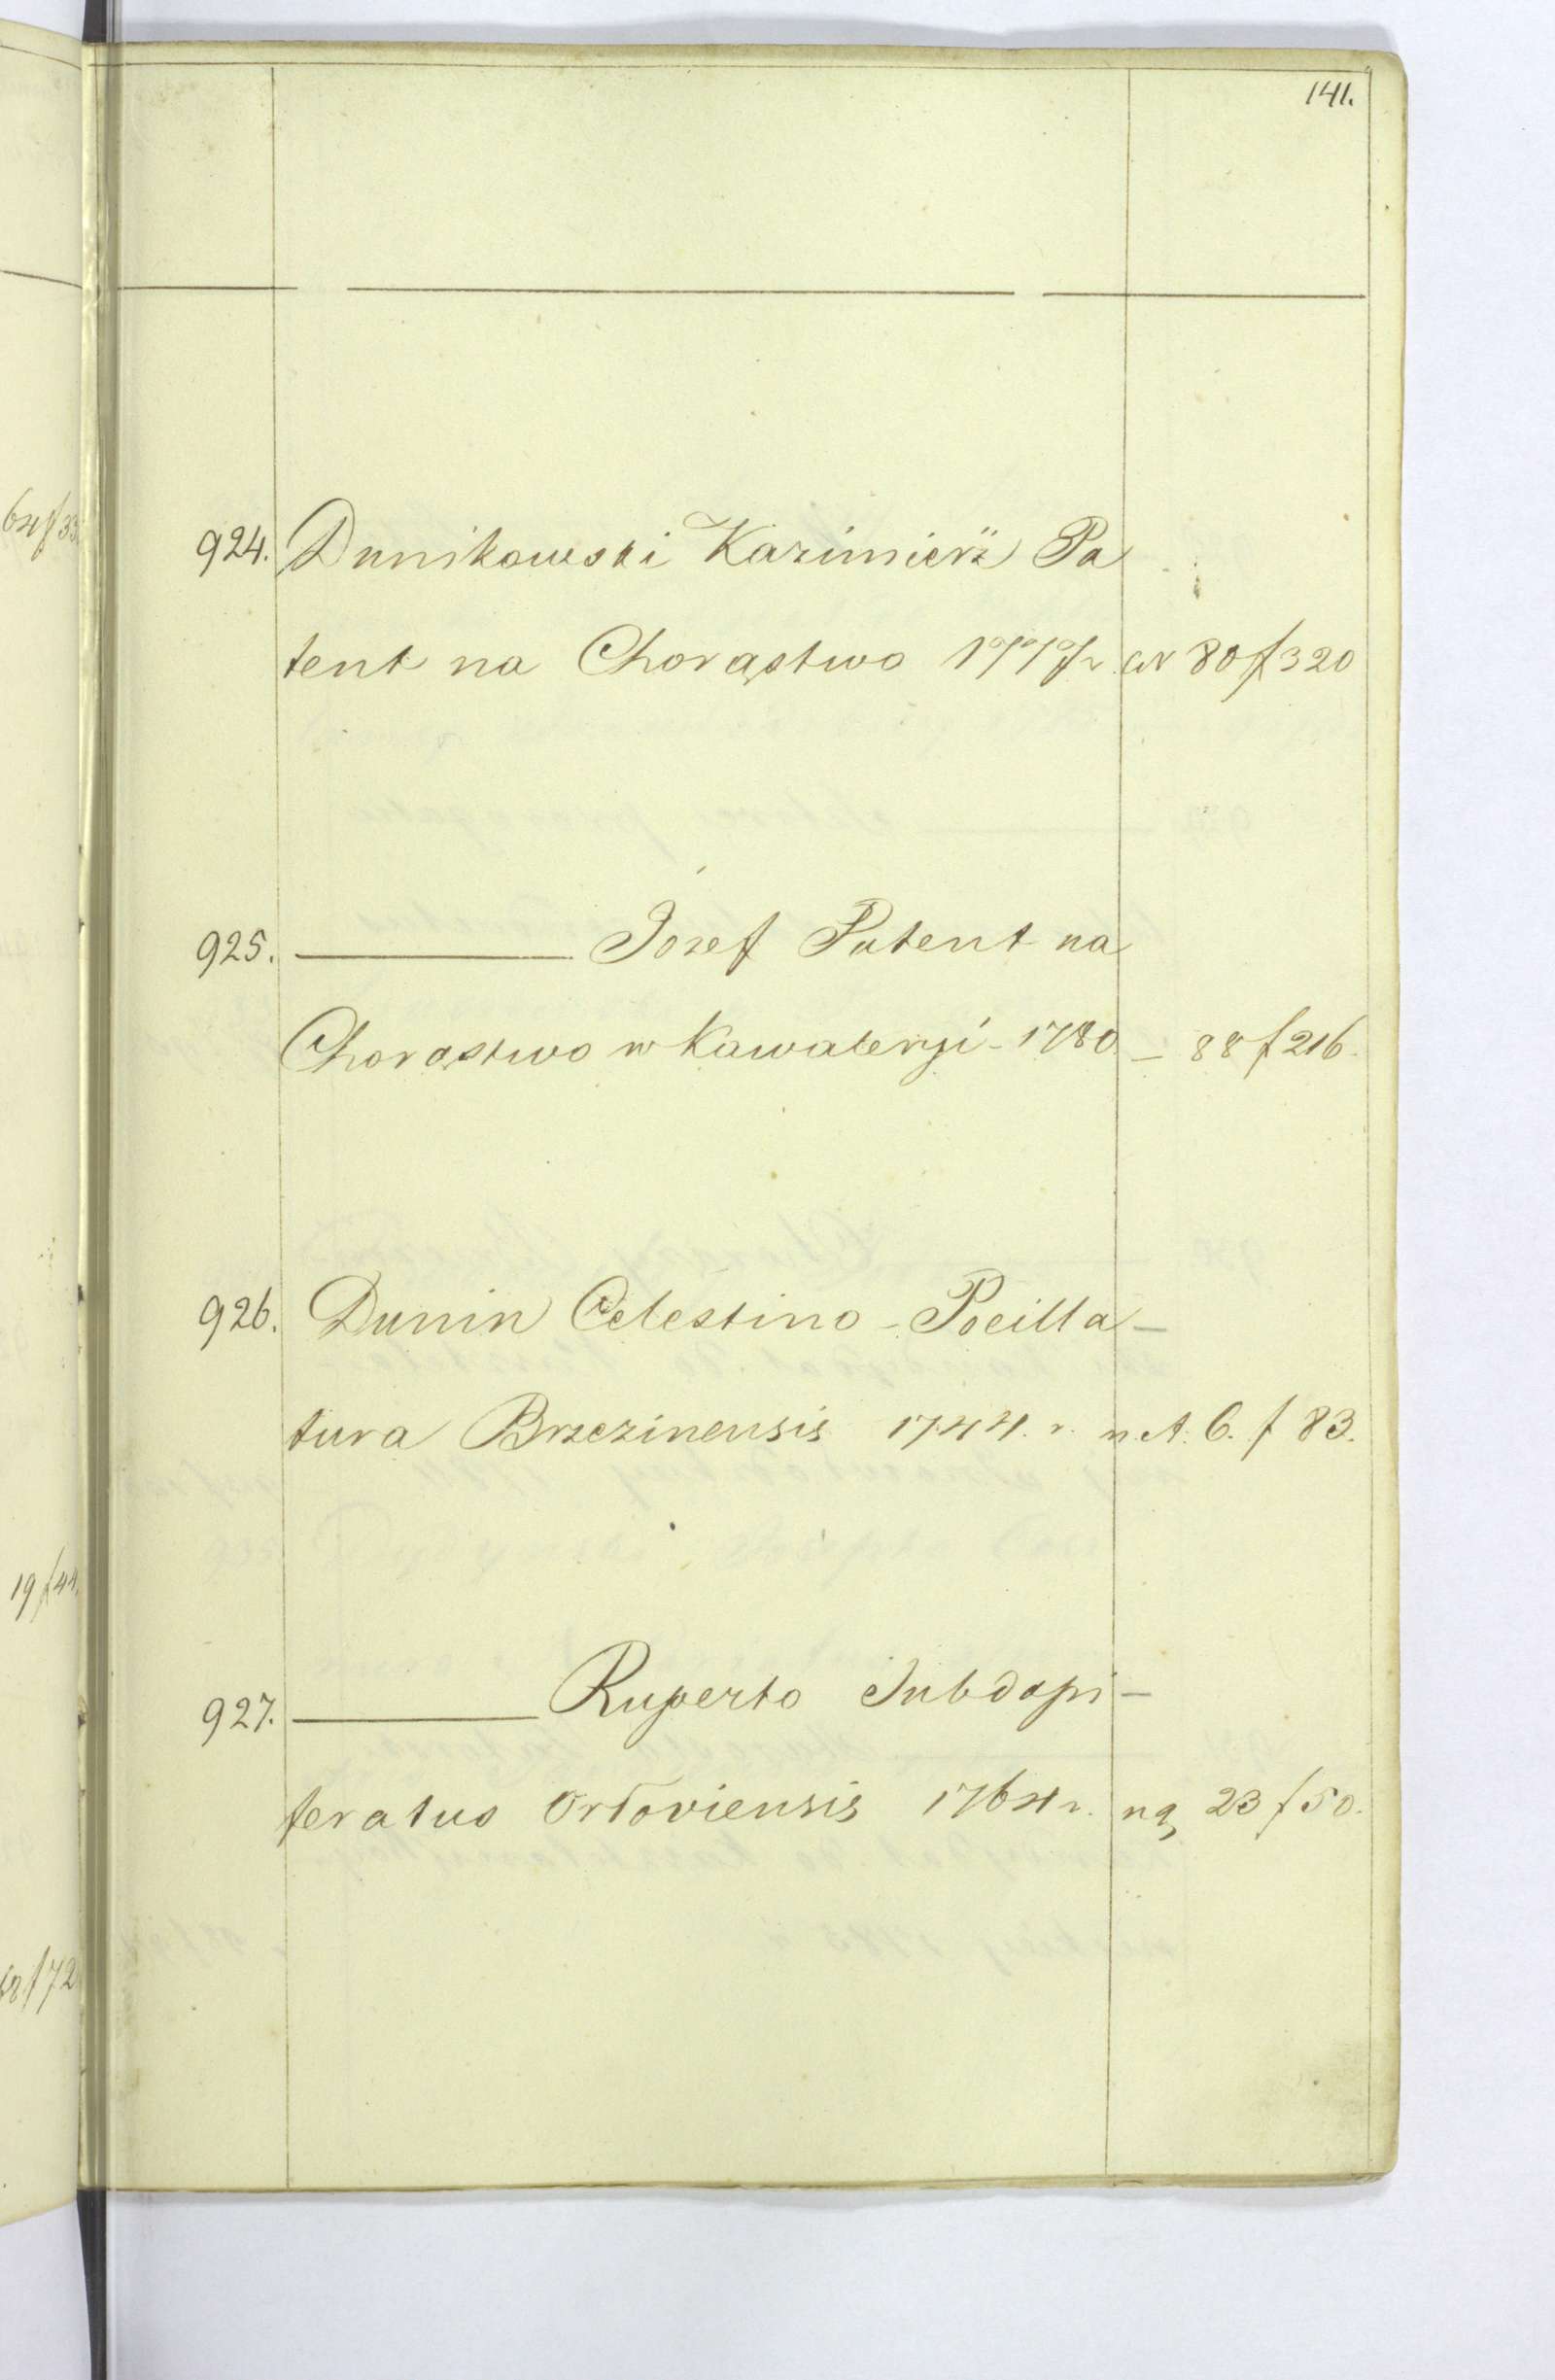 141.
924. Dunikowski Kazimierz Pa
tent na Chorąstwo 1777 r. N 80 f 320
925. ——— Jozef Patent na
Chorąstwo w Kawaleryi - 1780 — 88 f 216.
926. Dunin Celestino - Pocilla-
tura Brzezinensis 1744. r. n. A. 6. f 83.
927. ——— Ruperto Subdapi-
feratus Orłoviensis 1764 r. 23 f 50.
19 f 44.
f 72